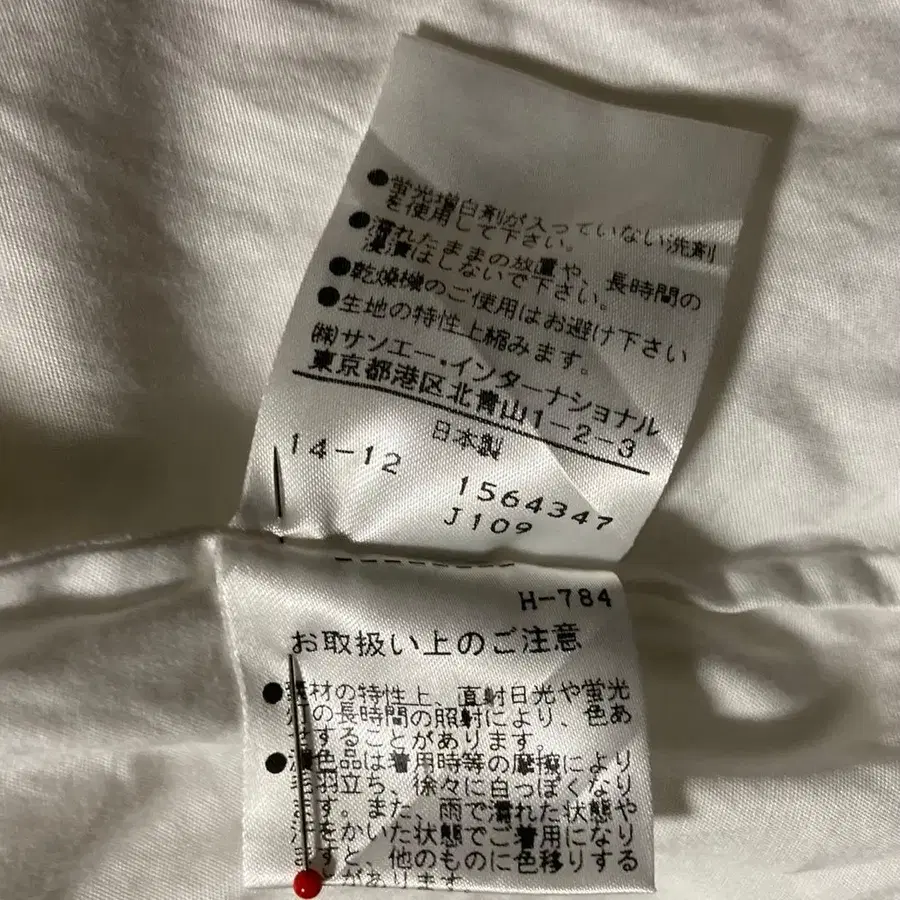 ●蛍光増白剤が入っていない洗剤
を使用して下さい。
●濡れたままの放置や、長時間の
浸漬はしないで下さい。
●乾燥機のご使用はお避け下さい
●生地の特性上縮みます。
㈱サンエー・インターナショナル
東京都港区北青山1-2-3
日本製
14-12
1564347
J109
H-784
お取扱い上のご注意
●素材の特性上、直射日光や蛍光
灯の長時間の照射により、色あ
せすることがあります。
●濃色品は着用時等の摩擦により
毛羽立ち、徐々に白っぽくなり
ます。また、雨で濡れた状態や
汗をかいた状態でご着用になり
ますと、他のものに色移りする
ことがあります。